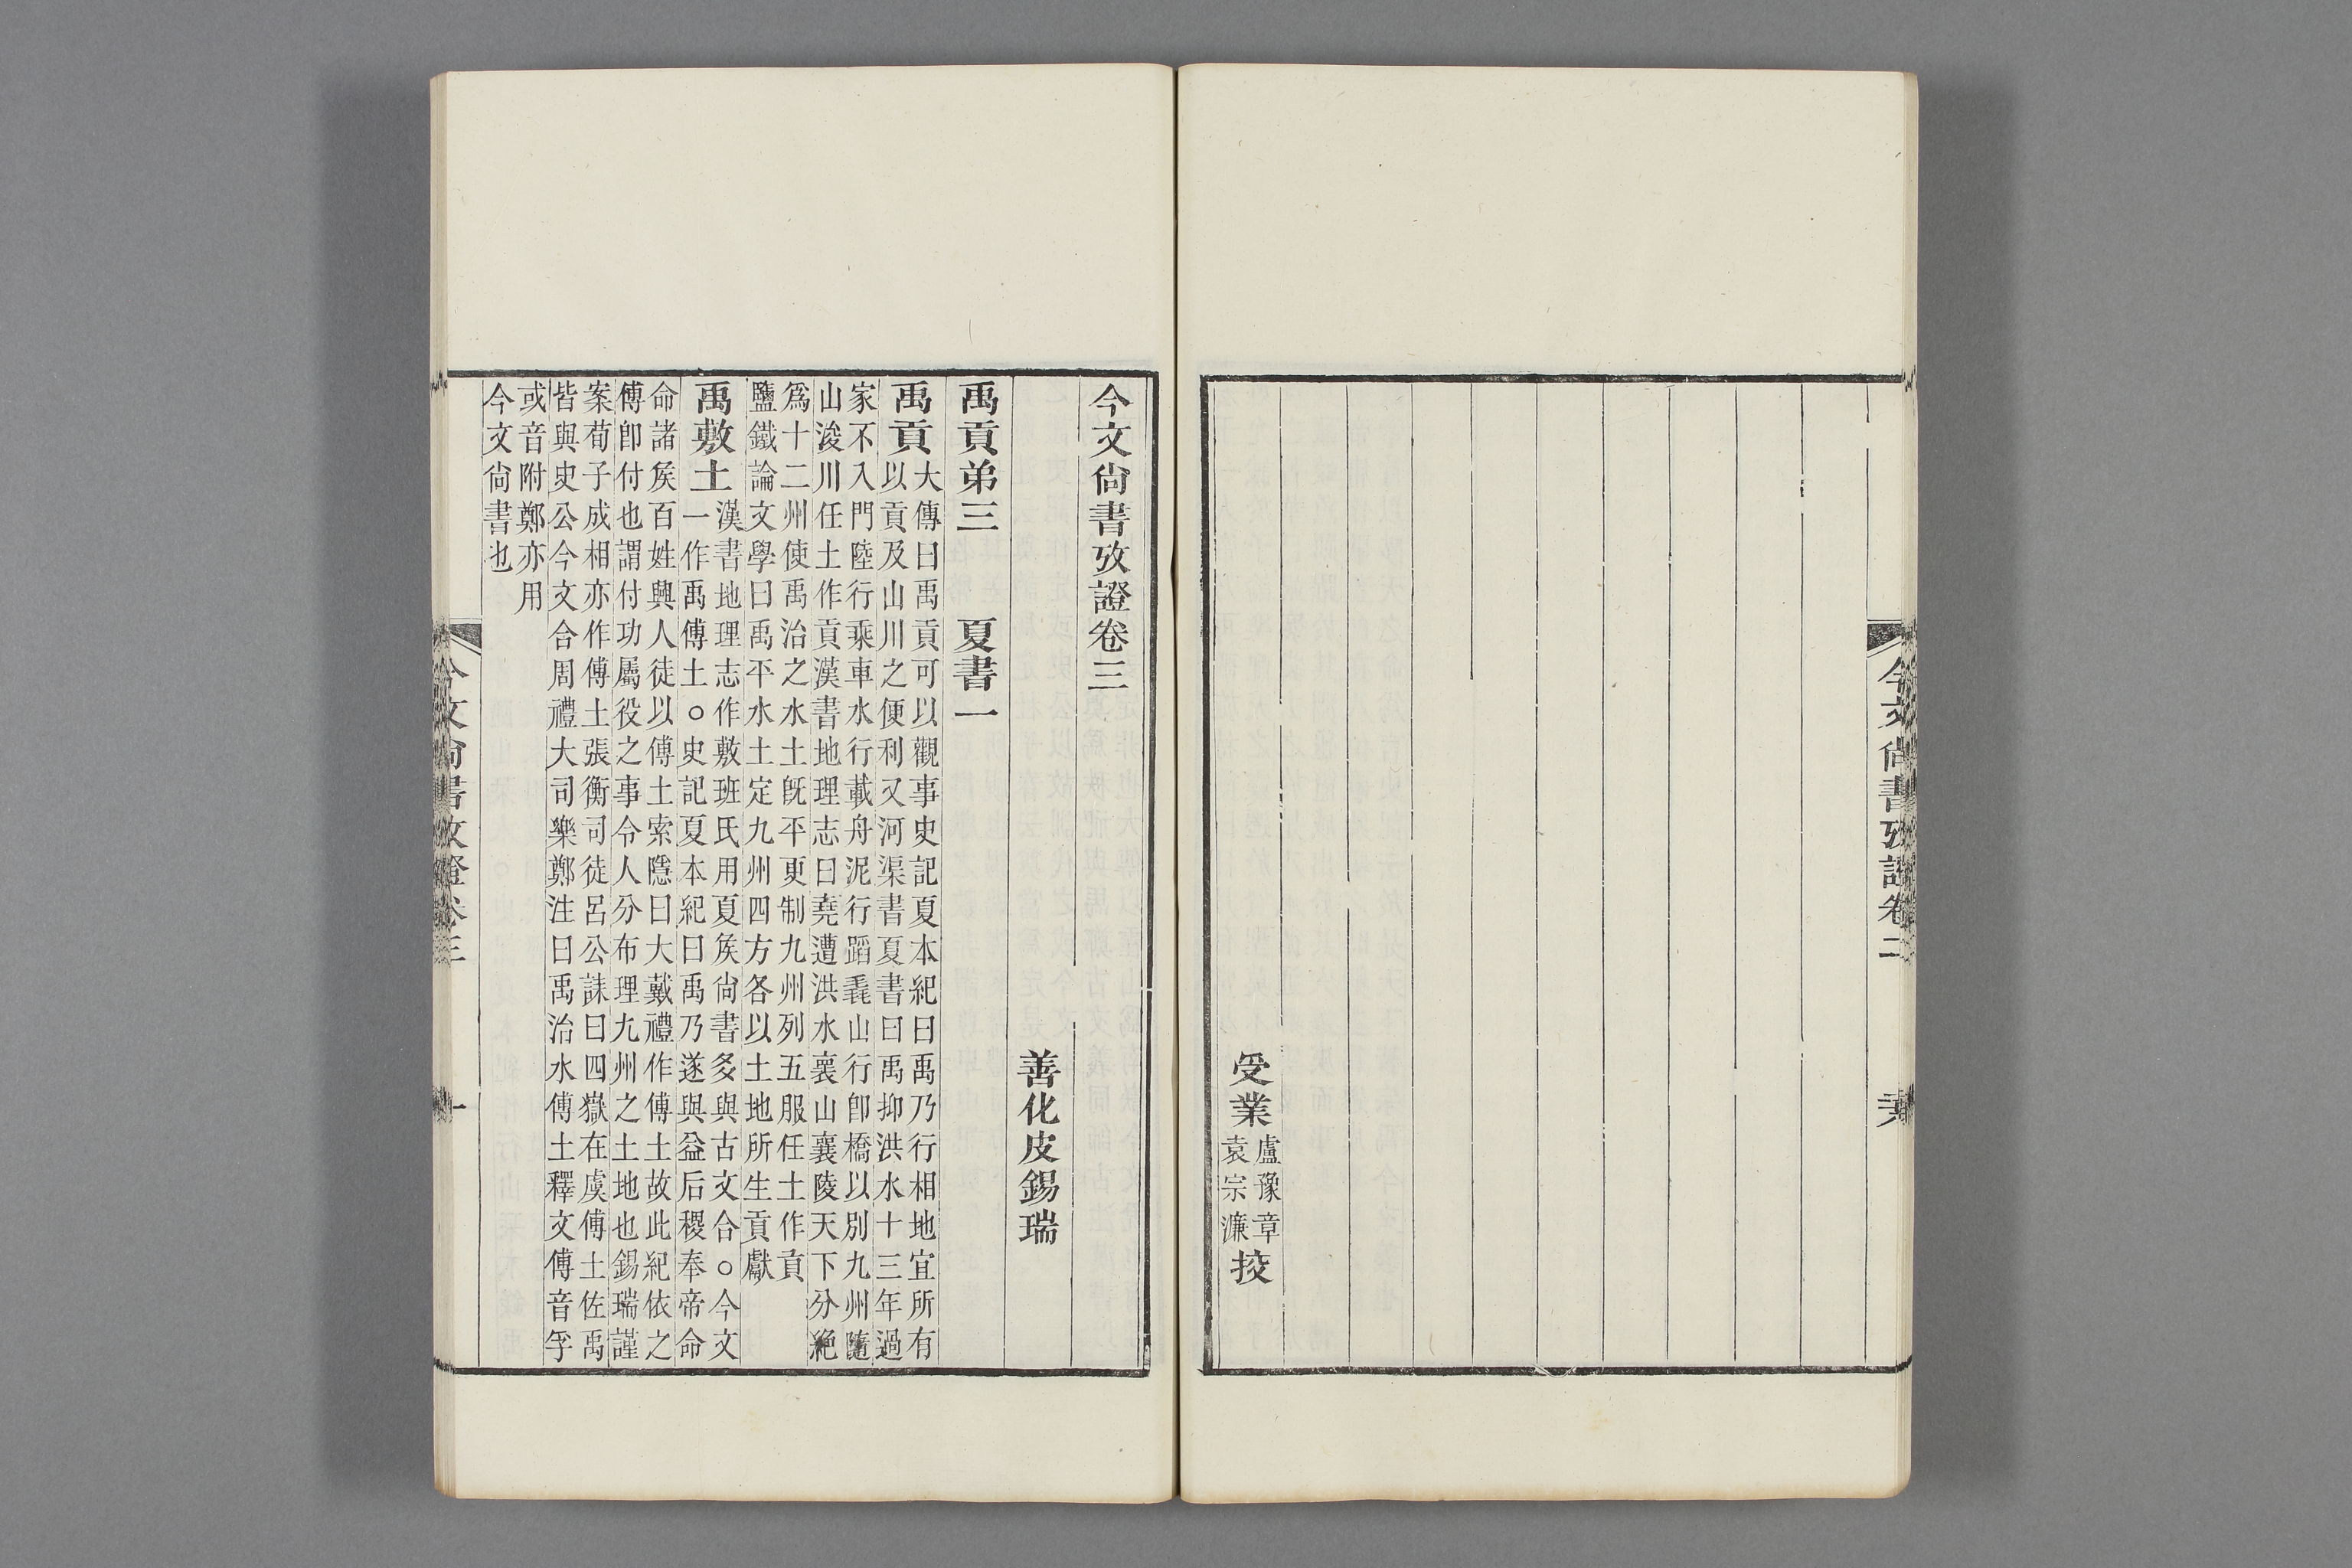 今文尚書攷證卷二
受業
盧豫章
袁宗濂
挍
今文尙書攷證卷三
善化皮錫瑞
禹貢弟三　夏書一
禹貢
大傳曰禹貢可以觀事史記夏本紀曰禹乃行相地宜所有
以貢及山川之便利又河渠書夏書曰禹抑洪水十三年過
家不入門陸行乘車水行載舟泥行蹈毳山行卽橋以別九州隨
山浚川任土作貢漢書地理志曰堯遭洪水襄山襄陵天下分絶
爲十二州使禹治之水土旣平更制九州列五服任土作貢
鹽鐵論文學曰禹平水土定九州四方各以土地所生貢獻
禹敷土
漢書地理志作敷班氏用夏矦尙書多與古文合○今文
一作禹傅土○史記夏本紀曰禹乃遂與益后稷奉帝命
命諸矦百姓興人徒以傅土索隱曰大戴禮作傅土故此紀依之
傅卽付也謂付功屬役之事令人分布理九州之土地也錫瑞謹
案荀子成相亦作傅土張衡司徒呂公誄曰四嶽在虞傅土佐禹
皆與史公今文合周禮大司樂鄭注曰禹治水傅土釋文傅音孚
或音附鄭亦用
今文尙書也
今文尙書攷證卷三
一